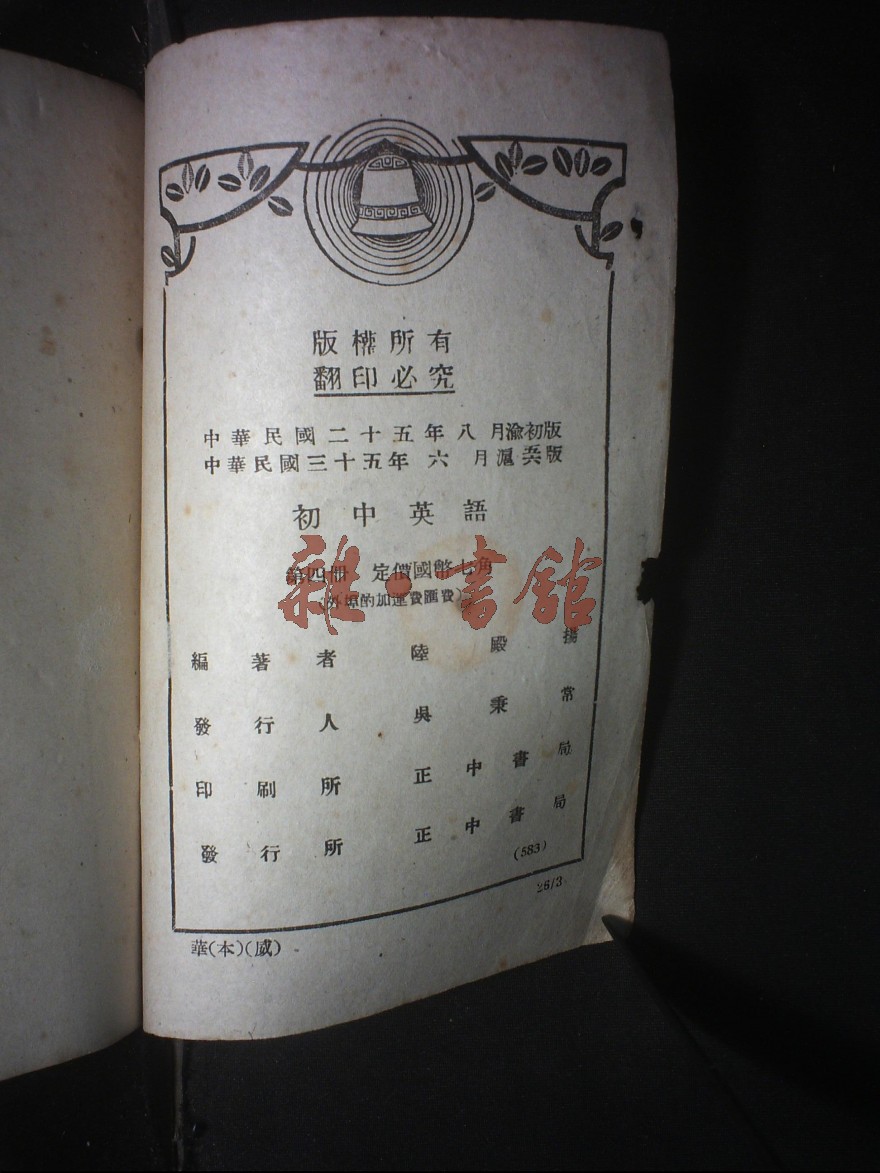 版權所有
翻印必究
中華民國二十五年八月渝初版
中華民國三十五年六月滬 版
初中英語
第四册 定價國幣七角
(外埠酌加運費匯費)
雜·書館
編著者 陸殿揚
發行人 吳秉常
印刷所 正中書局
發行所 正中書局
(583)
26/3
華(本)(威)